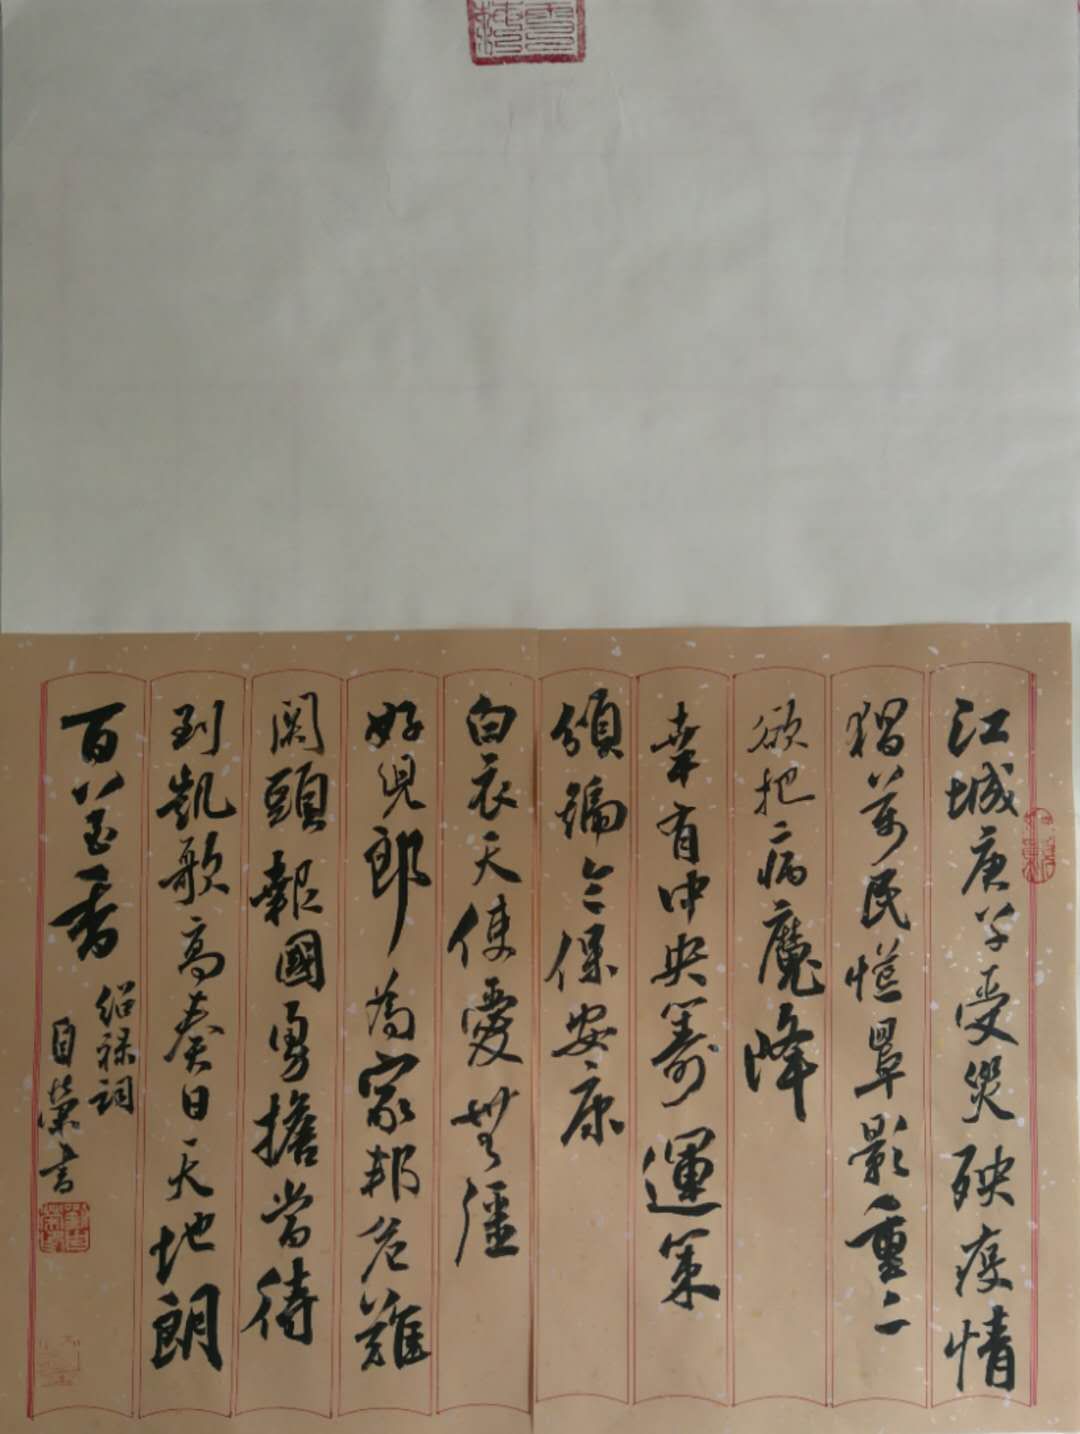 江城庚子受災殃疫情
猖萬民慌罩影重二
欲把病魔降
幸有中央籌運策
頒編令保安康
白衣天使愛無疆
好兒郎為家邦危難
關頭報國勇擔當待
到凱歌高奏日天地朗
百花香
紹祿詞
自榮書